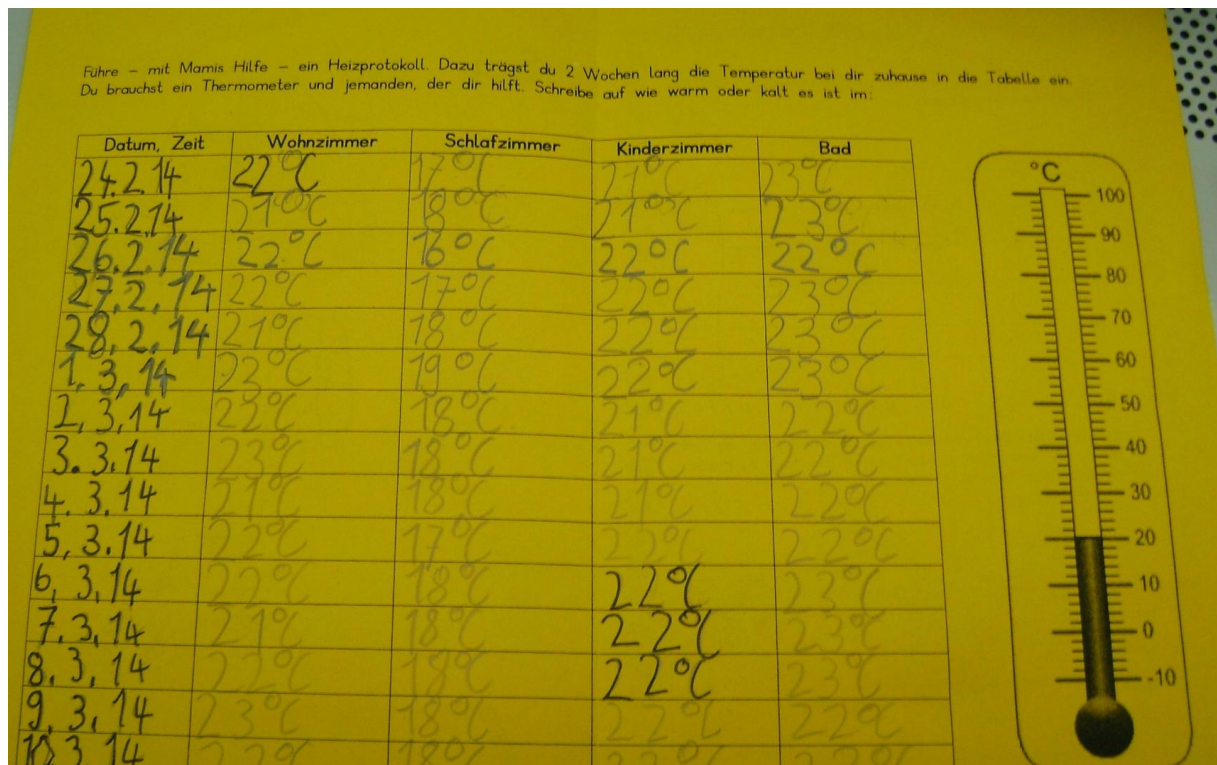 Führe - mit Mamis Hilfe - ein Heizprotokoll. Dazu trägst du 2 Wochen lang die Temperatur bei dir zuhause in die Tabelle ein.
Du brauchst ein Thermometer und jemanden, der dir hilft. Schreibe auf wie warm oder kalt es ist im:
Datum, Zeit Wohnzimmer Schlafzimmer Kinderzimmer Bad
24.2.14 22°C 17°C 21°C 23°C
25.2.14 21°C 18°C 21°C 23°C
26.2.14 22°C 16°C 22°C 22°C
27.2.14 22°C 17°C 22°C 23°C
28.2.14 21°C 18°C 22°C 23°C
1.3.14 23°C 19°C 22°C 23°C
2.3.14 22°C 18°C 21°C 22°C
3.3.14 23°C 18°C 21°C 22°C
4.3.14 21°C 18°C 21°C 22°C
5.3.14 22°C 17°C 22°C 22°C
6.3.14 22°C 18°C 22°C 23°C
7.3.14 21°C 18°C 22°C 23°C
8.3.14 22°C 18°C 22°C 23°C
9.3.14 23°C 18°C 22°C 22°C
10.3.14 22°C 18°C
°C
100
90
80
70
60
50
40
30
20
10
0
-10